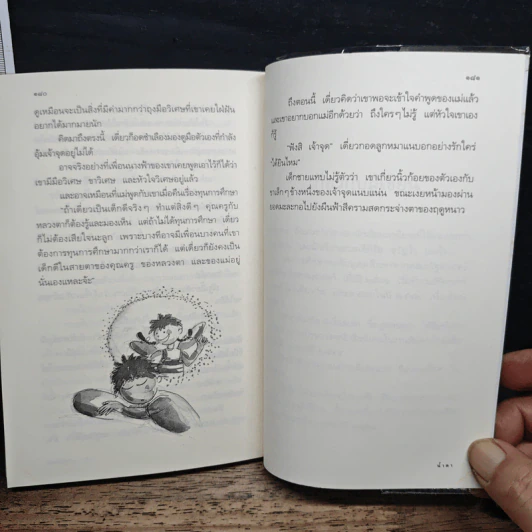 ๑๘๐
ดูเหมือนจะเป็นสิ่งที่มีค่ามากกว่าถุงมือวิเศษที่เขาเคยใฝ่ฝัน
อยากได้มากมายนัก
คิดมาถึงตรงนี้ เดี่ยวก็อดชำเลืองมองดูมือตัวเองที่กำลัง
อุ้มเจ้าจุดอยู่ไม่ได้
อาจจริงอย่างที่เพื่อนนางฟ้าของเขาเคยพูดเอาไว้ก็ได้ว่า
เขามีมือวิเศษ ขาวิเศษ และหัวใจวิเศษอยู่แล้ว
และอาจเหมือนที่แม่พูดกับเขาเมื่อคืนเรื่องทุนการศึกษา
"ถ้าเดี่ยวเป็นเด็กดีจริงๆ ทำแต่สิ่งดีๆ คุณครูกับ
หลวงตาก็ต้องรู้และมองเห็น แต่ถ้าไม่ได้ทุนการศึกษา เดี่ยว
ก็ไม่ต้องเสียใจนะลูก เพราะบางทีอาจมีเพื่อนบางคนที่เขา
ต้องการทุนการศึกษามากกว่าเราก็ได้ แต่เดี่ยวก็ยังคงเป็น
เด็กดีในสายตาของคุณครู ของหลวงตา และของแม่อยู่
นั่นเองแหละจ้ะ"
๑๘๑
ถึงตอนนี้ เดี่ยวคิดว่าเขาพอจะเข้าใจคำพูดของแม่แล้ว
และเขาอยากบอกแม่อีกด้วยว่า ถึงใครๆ ไม่รู้ แต่หัวใจเขาเอง
ก็รู้
"ฟังสิ เจ้าจุด" เดี่ยวกอดลูกหมาแนบอกอย่างรักใคร่
"ได้ยินไหม"
เด็กชายแทบไม่รู้ตัวว่า เขาเกี่ยวนิ้วก้อยของตัวเองกับ
ขาเล็กๆ ข้างหนึ่งของเจ้าจุดแนบแน่น ขณะเงยหน้ามองผ่าน
ยอดมะละกอไปยังผืนฟ้าสีครามสดกระจ่างตาของฤดูหนาว